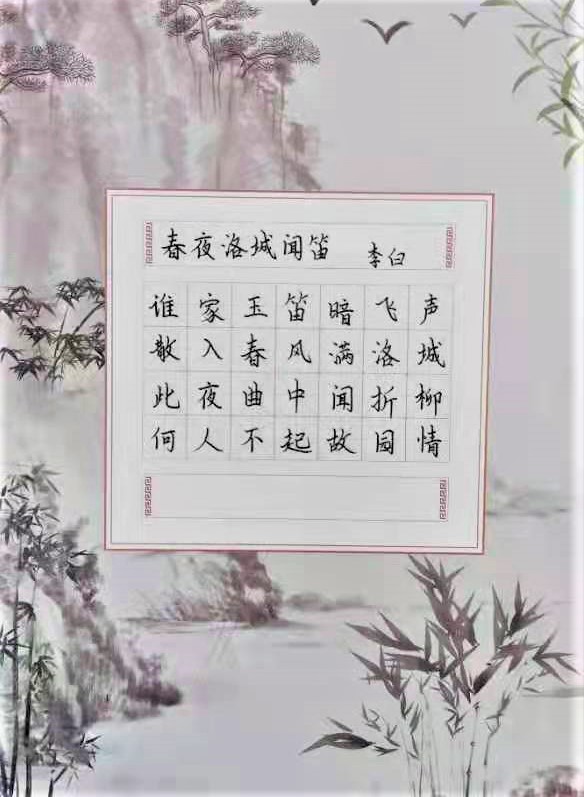 春夜洛城闻笛 李白
谁家玉笛暗飞声
散入春风满洛城
此夜曲中闻折柳
何人不起故园情